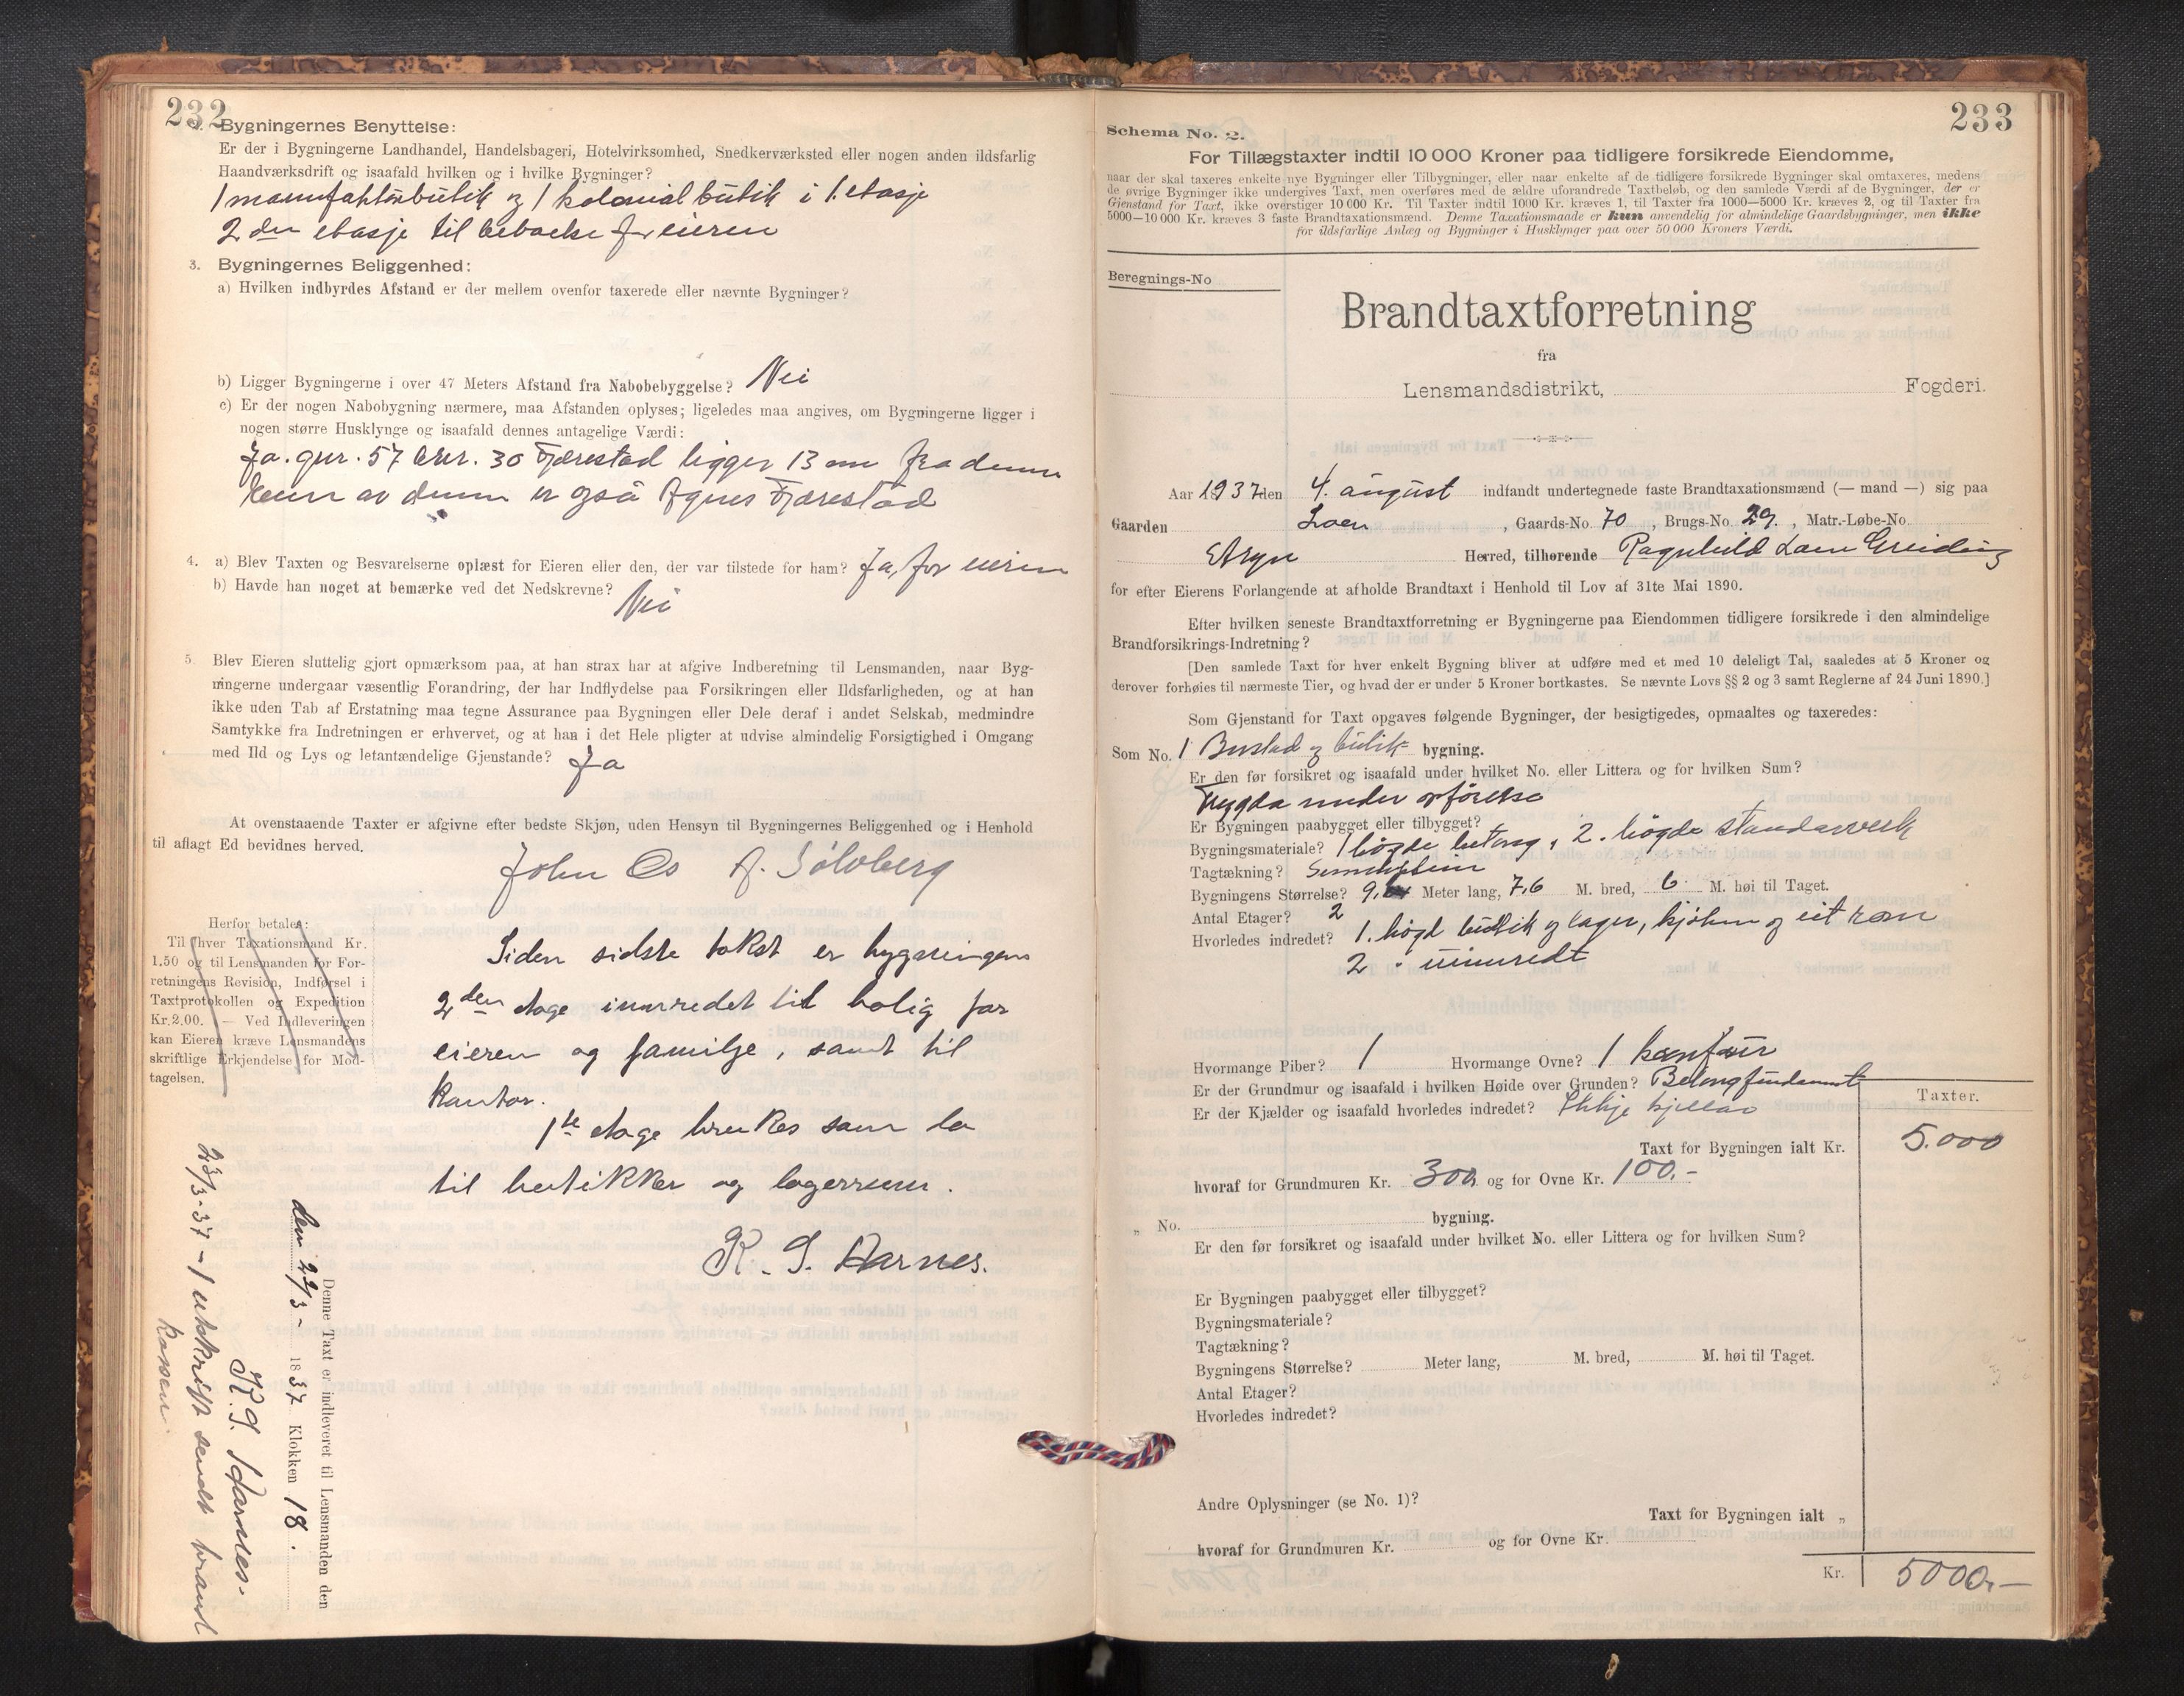 232
2. Bygningernes Benyttelse:
Er der i Bygningerne Landhandel, Handelsbageri, Hotelvirksomhed, Snedkerværksted eller nogen anden ildsfarlig
Haandværksdrift og isaafald hvilken og i hvilke Bygninger?
1 manufakturbutik og 1 kolonial butik i 1. etasje
2den etasje til beboelse for eieren
3. Bygningernes Beliggenhed:
a) Hvilken indbyrdes Afstand er der mellem ovenfor taxerede eller nævnte Bygninger?
b) Ligger Bygningerne i over 47 Meters Afstand fra Nabobebyggelse? Nei
c) Er der nogen Nabobygning nærmere, maa Afstanden oplyses; ligeledes maa angives, om Bygningerne ligger i
nogen større Husklynge og isaafald dennes antagelige Værdi:
Ja. gnr. 57 bnr. 30 Fjærestad ligger 13 m fra denne
av denne er også Agnes Fjærestad
4. a) Blev Taxten og Besvarelserne oplæst for Eieren eller den, der var tilstede for ham? Ja, for eieren
b) Havde han noget at bemærke ved det Nedskrevne? Nei
5. Blev Eieren sluttelig gjort opmærksom paa, at han strax har at afgive Indberetning til Lensmanden, naar Byg-
ningerne undergaar væsentlig Forandring, der har Indflydelse paa Forsikringen eller Ildsfarligheden, og at han
ikke uden Tab af Erstatning maa tegne Assurance paa Bygningen eller Dele deraf i andet Selskab, medmindre
Samtykke fra Indretningen er erhvervet, og at han i det Hele pligter at udvise almindelig Forsigtighed i Omgang
med Ild og Lys og letantændelige Gjenstande? Ja
At ovenstaaende Taxter er afgivne efter bedste Skjøn, uden Hensyn til Bygningernes Beliggenhed og i Henhold
til aflagt Ed bevidnes herved.
John Os A. Sølvberg
Herfor betales:
Til hver Taxationsmand Kr.
1.50 og til Lensmanden for For-
retningens Revision, Indførsel i
Taxtprotokollen og Expedition
Kr. 2.00. — Ved Indleveringen
kan Eieren kræve Lensmandens
skriftlige Erkjendelse for Mod-
tagelsen.
Siden sidste takst er bygningens
2den etage innredet til bolig for
eieren og familje, samt til
kontor.
1ste etage brukes som to
til butikker og lagerrum.
K. J. Aarnes.
Denne Taxt er indleveret til Lensmanden den
den 22/3 - 1837 Klokken 18.
K. J. Aarnes.
23/3-37 - 1 utskrift sendt brand
kassen.
233
Schema No. 2.
For Tillægstaxter indtil 10 000 Kroner paa tidligere forsikrede Eiendomme,
naar der skal taxeres enkelte nye Bygninger eller Tilbygninger, eller naar enkelte af de tidligere forsikrede Bygninger skal omtaxeres, medens
de øvrige Bygninger ikke undergives Taxt, men overføres med de ældre uforandrede Taxtbeløb, og den samlede Værdi af de Bygninger, der er
Gjenstand for Taxt, ikke overstiger 10 000 Kr. Til Taxter indtil 1000 Kr. kræves 1, til Taxter fra 1000—5000 Kr. kræves 2, og til Taxter fra
5000—10 000 Kr. kræves 3 faste Brandtaxationsmænd. Denne Taxationsmaade er kun anvendelig for almindelige Gaardsbygninger, men ikke
for ildsfarlige Anlæg og Bygninger i Husklynger paa over 50 000 Kroners Værdi.
Beregnings-No
Brandtaxtforretning
fra
Lensmandsdistrikt, Fogderi.
Aar 1937 den 4. august indfandt undertegnede faste Brandtaxationsmænd (— mand —) sig paa
Gaarden Loen, Gaards-No. 70, Brugs-No. 29, Matr.-Løbe-No.
Stryn Herred, tilhørende Ragnhild Loen Greiding
for efter Eierens Forlangende at afholde Brandtaxt i Henhold til Lov af 31te Mai 1890.
Efter hvilken seneste Brandtaxtforretning er Bygningerne paa Eiendommen tidligere forsikrede i den almindelige
Brandforsikrings-Indretning?
[Den samlede Taxt for hver enkelt Bygning bliver at udføre med et med 10 deleligt Tal, saaledes at 5 Kroner og
derover forhøies til nærmeste Tier, og hvad der er under 5 Kroner bortkastes. Se nævnte Lovs §§ 2 og 3 samt Reglerne af 24 Juni 1890.]
Som Gjenstand for Taxt opgaves følgende Bygninger, der besigtigedes, opmaaltes og taxeredes:
Som No. 1 Bustad og butik- bygning.
Er den før forsikret og isaafald under hvilket No. eller Littera og for hvilken Sum?
Trygda under opførelse
Er Bygningen paabygget eller tilbygget?
Bygningsmateriale? 1 høgde betong, 2. høgde standarverk
Tagtækning? Sementstein
Bygningens Størrelse? 9,6 Meter lang, 7,6 M. bred, 6 M. høi til Taget.
Antal Etager? 2
Hvorledes indreddet? 1. høgd butik og lager, kjøken og eit rom
2 " uinnredt
Hvormange Piber? 1 Hvormange Ovne? 1 komfur
Er der Grundmur og isaafald i hvilken Høide over Grunden? Betongfundament
Er der Kjælder og isaafald hvorledes indredet? Ikkje kjellar
Taxter.
Taxt for Bygningen ialt Kr. 5.000
hvoraf for Grundmuren Kr. 300 og for Ovne Kr. 100.-
„ No. bygning.
Er den før forsikret og isaafald under hvilket No. eller Littera og for hvilken Sum?
Er Bygningen paabygget eller tilbygget?
Bygningsmateriale?
Tagtækning?
Bygningens Størrelse? Meter lang, M. bred, M. høi til Taget.
Antal Etager?
Hvorledes indredet?
Andre Oplysninger (se No. 1)?
Taxt for Bygningen ialt „
hvoraf for Grundmuren Kr. og for Ovne Kr.
Kr. 5000,-